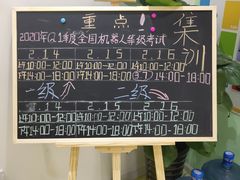 重点！
集训
2020年Q1季度全国机器人等级考试
2.14 2.15 2.16
上午10:00-12:00 上午10:00-12:00
下午14:00-18:00 下午14:00-18:00 14:00-18:00
一级 二级
2.14 2.15 2.16
上午10:00-12:00 上午10:00-12:00 上午10:00-12:00
下午14:00-18:00 下午14:00-18:00 下午14:00-18:00